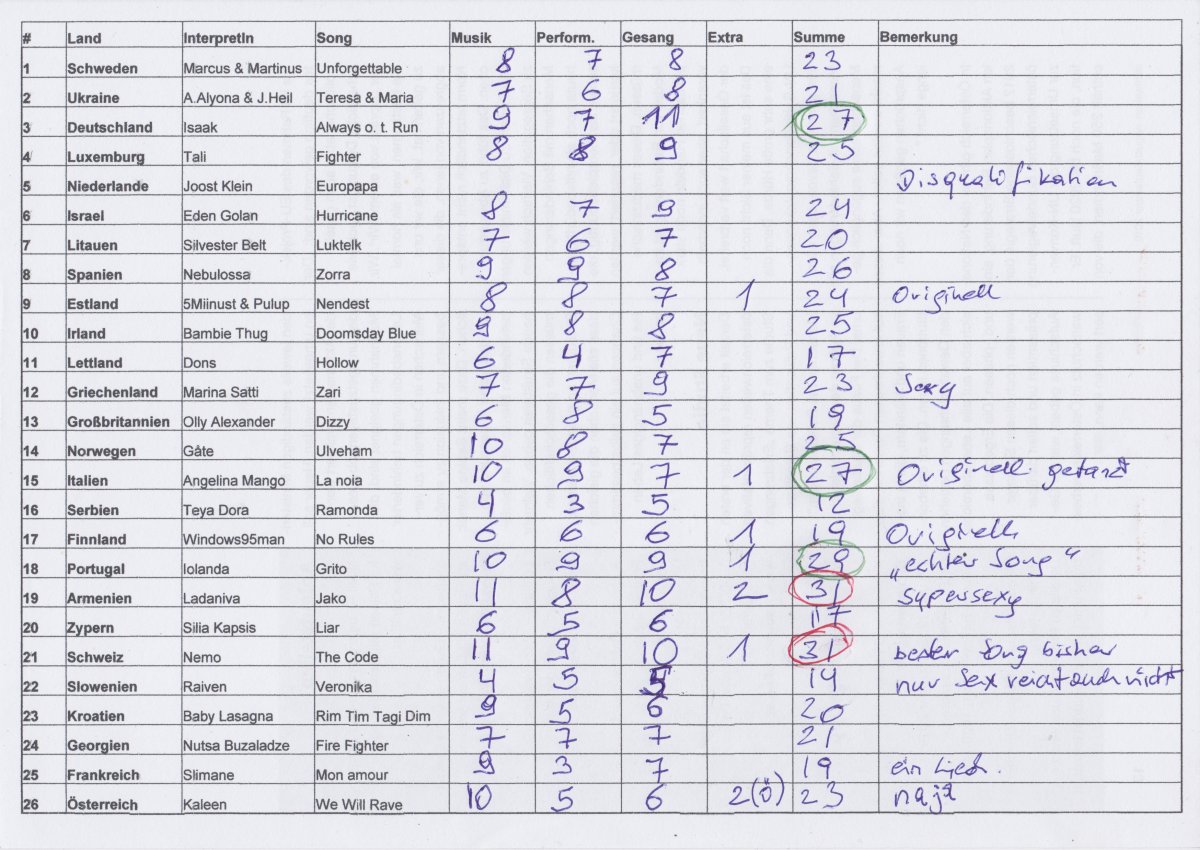 # Land InterpretIn Song Musik Perform. Gesang Extra Summe Bemerkung
1 Schweden Marcus & Martinus Unforgettable 8 7 8 23
2 Ukraine A.Alyona & J.Heil Teresa & Maria 7 6 8 21
3 Deutschland Isaak Always o. t. Run 9 7 11 27
4 Luxemburg Tali Fighter 8 8 9 25
5 Niederlande Joost Klein Europapa Disqualifikation
6 Israel Eden Golan Hurricane 8 7 9 24
7 Litauen Silvester Belt Luktelk 7 6 7 20
8 Spanien Nebulossa Zorra 9 9 8 26
9 Estland 5Miinust & Pulup Nendest 8 8 7 1 24 Originell
10 Irland Bambie Thug Doomsday Blue 9 8 8 25
11 Lettland Dons Hollow 6 4 7 17
12 Griechenland Marina Satti Zari 7 7 9 23 Sexy
13 Großbritannien Olly Alexander Dizzy 6 8 5 19
14 Norwegen Gåte Ulveham 10 8 7 25
15 Italien Angelina Mango La noia 10 9 7 1 27 Originell getanzt
16 Serbien Teya Dora Ramonda 4 3 5 12
17 Finnland Windows95man No Rules 6 6 6 1 19 Originell
18 Portugal Iolanda Grito 10 9 9 1 29 „echter Song"
19 Armenien Ladaniva Jako 11 8 10 2 31 supersexy
20 Zypern Silia Kapsis Liar 6 5 6 17
21 Schweiz Nemo The Code 11 9 10 1 31 bester Song bisher
22 Slowenien Raiven Veronika 4 5 5 14 nur Sex reicht auch nicht
23 Kroatien Baby Lasagna Rim Tim Tagi Dim 9 5 6 20
24 Georgien Nutsa Buzaladze Fire Fighter 7 7 7 21
25 Frankreich Slimane Mon amour 9 3 7 19 ein Lied.
26 Österreich Kaleen We Will Rave 10 5 6 2(Ö) 23 naja